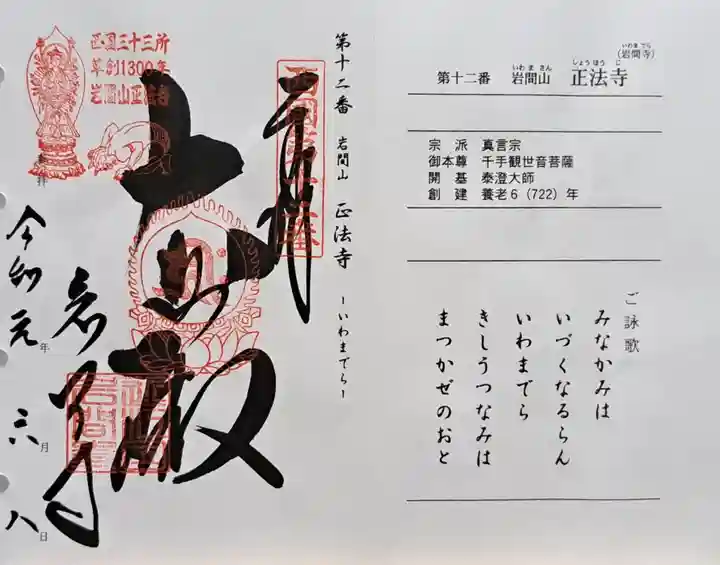 第十二番 岩間山 正法寺 (岩間寺)
いわま さん しょうほう じ いわま でら
宗 派 真言宗
御本尊 千手観世音菩薩
開 基 泰澄大師
創 建 養老6(722)年
ご詠歌
みなかみは
いづくなるらん
いわまでら
きしうつなみは
まつかぜのおと
第十二番 岩間山 正法寺 ーいわまでらー
西国第十二番
西国三十三所
草創1300年
岩間山正法寺
奉拝
大悲殿
岩間寺
令和元年 六月 八日